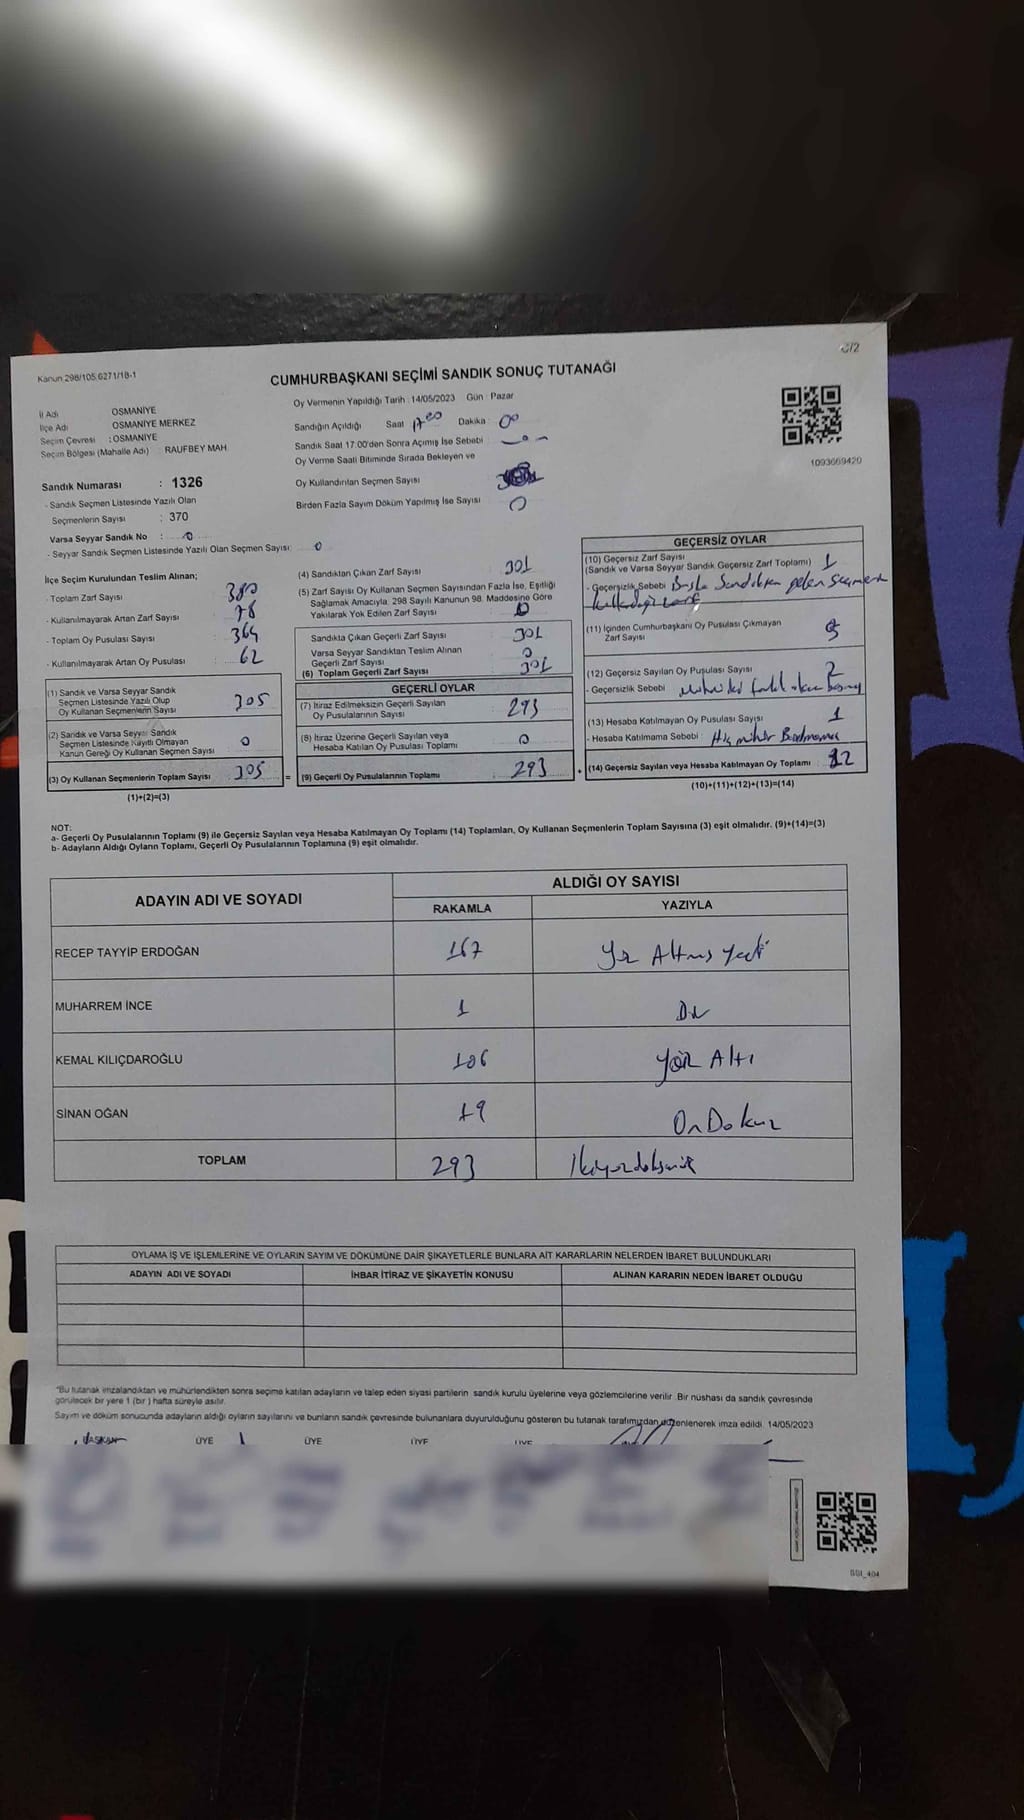 C/2
Kanun 298/105;6271/18-1
CUMHURBAŞKANI SEÇİMİ SANDIK SONUÇ TUTANAĞI
İl Adı OSMANİYE
İlçe Adı OSMANİYE MERKEZ
Seçim Çevresi : OSMANİYE
Seçim Bölgesi (Mahalle Adı) : RAUFBEY MAH.
Sandık Numarası : 1326
- Sandık Seçmen Listesinde Yazılı Olan
Seçmenlerin Sayısı : 370
Varsa Seyyar Sandık No : 0
- Seyyar Sandık Seçmen Listesinde Yazılı Olan Seçmen Sayısı: 0
Oy Vermenin Yapıldığı Tarih :14/05/2023 Gün : Pazar
Sandığın Açıldığı Saat 17 00 Dakika 00
Sandık Saat 17:00'den Sonra Açımış İse Sebebi
Oy Verme Saati Bitiminde Sırada Bekleyen ve
Oy Kullandırılan Seçmen Sayısı
Birden Fazla Sayım Döküm Yapılmış İse Sayısı 0
1093669420
İlçe Seçim Kurulundan Teslim Alınan;
- Toplam Zarf Sayısı 380
- Kullanılmayarak Artan Zarf Sayısı 78
- Toplam Oy Pusulası Sayısı 364
- Kullanılmayarak Artan Oy Pusulası 62
(1) Sandık ve Varsa Seyyar Sandık
Seçmen Listesinde Yazılı Olup
Oy Kullanan Seçmenlerin Sayısı 305
(2) Sandık ve Varsa Seyyar Sandık
Seçmen Listesinde Kayıtlı Olmayan
Kanun Gereği Oy Kullanan Seçmen Sayısı 0
(3) Oy Kullanan Seçmenlerin Toplam Sayısı 305 =
(1)+(2)=(3)
(4) Sandıktan Çıkan Zarf Sayısı 301
(5) Zarf Sayısı Oy Kullanan Seçmen Sayısından Fazla İse, Eşitliği
Sağlamak Amacıyla; 298 Sayılı Kanunun 98. Maddesine Göre
Yakılarak Yok Edilen Zarf Sayısı 0
Sandıkta Çıkan Geçerli Zarf Sayısı 301
Varsa Seyyar Sandıktan Teslim Alınan
Geçerli Zarf Sayısı 0
(6) Toplam Geçerli Zarf Sayısı 301
GEÇERLİ OYLAR
(7) İtiraz Edilmeksizin Geçerli Sayılan
Oy Pusulalarının Sayısı 293
(8) İtiraz Üzerine Geçerli Sayılan veya
Hesaba Katılan Oy Pusulası Toplamı 0
(9) Geçerli Oy Pusulalarının Toplamı 293 +
GEÇERSİZ OYLAR
(10) Geçersiz Zarf Sayısı
(Sandık ve Varsa Seyyar Sandık Geçersiz Zarf Toplamı) 1
- Geçersizlik Sebebi Başka Sandıktan gelen seçmenin
(11) İçinden Cumhurbaşkanı Oy Pusulası Çıkmayan
Zarf Sayısı
(12) Geçersiz Sayılan Oy Pusulası Sayısı 2
- Geçersizlik Sebebi
(13) Hesaba Katılmayan Oy Pusulası Sayısı 1
- Hesaba Katılmama Sebebi : Hiç mühür Basılmamış
(14) Geçersiz Sayılan veya Hesaba Katılmayan Oy Toplamı 12
(10)+(11)+(12)+(13)=(14)
NOT:
a- Geçerli Oy Pusulalarının Toplamı (9) ile Geçersiz Sayılan veya Hesaba Katılmayan Oy Toplamı (14) Toplamları, Oy Kullanan Seçmenlerin Toplam Sayısına (3) eşit olmalıdır. (9)+(14)=(3)
b- Adayların Aldığı Oyların Toplamı, Geçerli Oy Pusulalarının Toplamına (9) eşit olmalıdır.
ADAYIN ADI VE SOYADI ALDIĞI OY SAYISI
RAKAMLA YAZIYLA
RECEP TAYYİP ERDOĞAN 167 Yüz Altmış Yedi
MUHARREM İNCE 1 Bir
KEMAL KILIÇDAROĞLU 106 Yüz Altı
SİNAN OĞAN 19 On Dokuz
TOPLAM 293
OYLAMA İŞ VE İŞLEMLERİNE VE OYLARIN SAYIM VE DÖKÜMÜNE DAİR ŞİKAYETLERLE BUNLARA AİT KARARLARIN NELERDEN İBARET BULUNDUKLARI
ADAYIN ADI VE SOYADI İHBAR İTİRAZ VE ŞİKAYETİN KONUSU ALINAN KARARIN NEDEN İBARET OLDUĞU
*Bu tutanak imzalandıktan ve mühürlendikten sonra seçime katılan adayların ve talep eden siyasi partilerin sandık kurulu üyelerine veya gözlemcilerine verilir. Bir nüshası da sandık çevresinde
görülecek bir yere 1 (bir) hafta süreyle asılır.
Sayım ve döküm sonucunda adayların aldığı oyların sayılarını ve bunların sandık çevresinde bulunanlara duyurulduğunu gösteren bu tutanak tarafımızdan düzenlenerek imza edildi. 14/05/2023
BAŞKAN ÜYE ÜYE ÜYE ÜYE
SSI_404